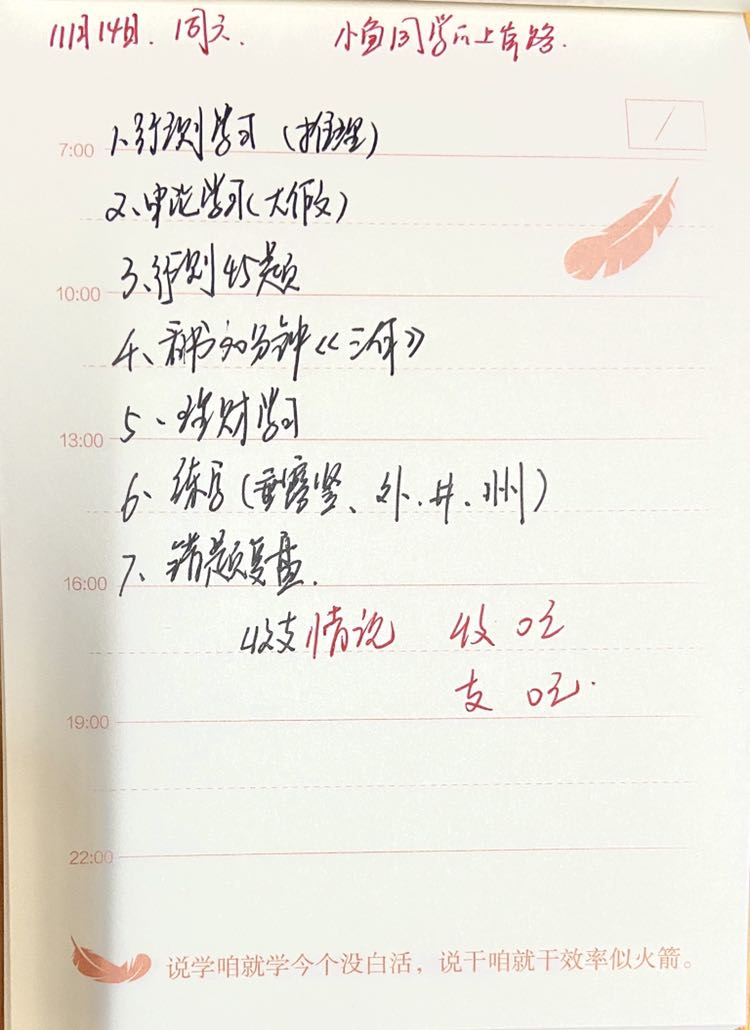 11月14日.周天. 小鱼同学的上岸路.
7:00 1、行测学习（推理）
2、申论学习（大作文）
3、行测45题
10:00
4、看书30分钟《三体》
5、理财学习
13:00
6、练字（垂露竖、外、井、州）
7、错题复盘.
16:00
收支情况 收 0元
支 0元.
19:00
22:00
说学咱就学今个没白活，说干咱就干效率似火箭。